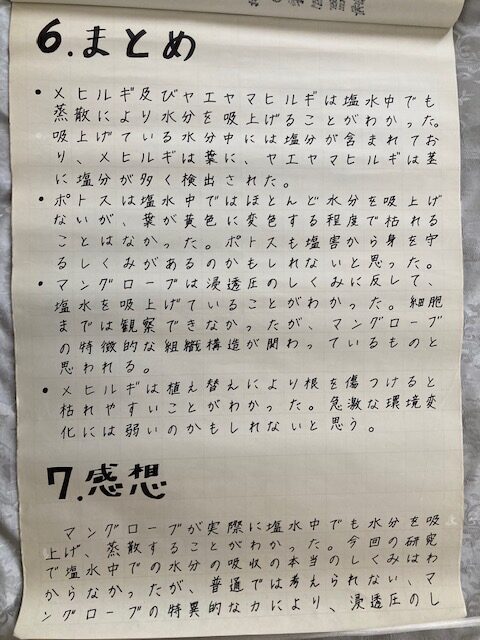 6.まとめ
• メヒルギ及びヤエヤマヒルギは塩水中でも
蒸散により水分を吸上げることがわかった。
吸上げている水分中には塩分が含まれてお
り、メヒルギは葉に、ヤエヤマヒルギは茎
に塩分が多く検出された。
• ポトスは塩水中ではほとんど水分を吸上げ
ないが、葉が黄色に変色する程度で枯れる
ことはなかった。ポトスも塩害から身を守
るしくみがあるのかもしれないと思った。
• マングローブは浸透圧のしくみに反して、
塩水を吸上げていることがわかった。細胞
までは観察できなかったが、マングローブ
の特徴的な組織構造が関わっているものと
思われる。
• メヒルギは植え替えにより根を傷つけると
枯れやすいことがわかった。急激な環境変
化には弱いのかもしれないと思う。
7.感想
マングローブが実際に塩水中でも水分を吸
上げ、蒸散することがわかった。今回の研究
で塩水中での水分の吸収の本当のしくみはわ
からなかったが、普通では考えられない、マ
ングローブの特異的な力により、浸透圧のし